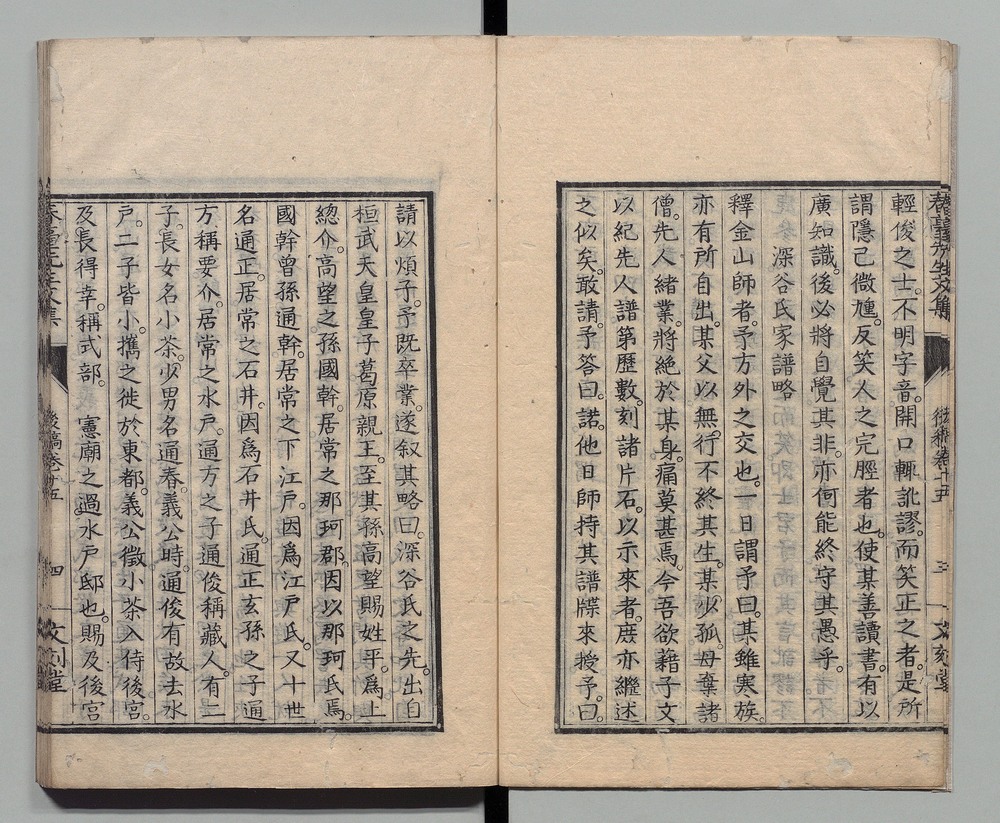 輕俊之士。不明字音。開口輙訛謬。而笑正之者。是所
謂隱己微尰。反笑人之完脛者也。使其善讀書。有以
廣知識。後必將自覺其非。亦何能終守其愚乎。
深谷氏家譜略
釋金山師者。予方外之交也。一日謂予曰。某雖寒族。
亦有所自出。某父以無行不終其生。某少孤。母棄諸
僧。先人緒業。將絕於某身。痛莫甚焉。今吾欲藉子文
以紀先人譜第歷數。刻諸片石。以示來者。庶亦繼述
之似矣。敢請。予答曰。諾。他日師持其譜牒來授予曰。
後稿卷十五
三
文刻堂
請以煩子。予既卒業。遂叙其略曰。深谷氏之先。出自
桓武天皇皇子葛原親王。至其孫高望賜姓平。爲上
總介。高望之孫國幹。居常之那珂郡。因以那珂氏焉。
國幹曾孫通幹。居常之下江戸。因爲江戸氏。又十世
名通正。居常之石井。因爲石井氏。通正玄孫之子通
方稱要介。居常之水戸。通方之子通俊稱藏人。有二
子。長女名小茶。少男名通春。義公時。通俊有故去水
戸。二子皆小。攜之徙於東都。義公徵小茶入侍後宮。
及長得幸。稱式部。憲廟之過水戸邸也。賜及後宮
後稿卷十五
四
文刻堂